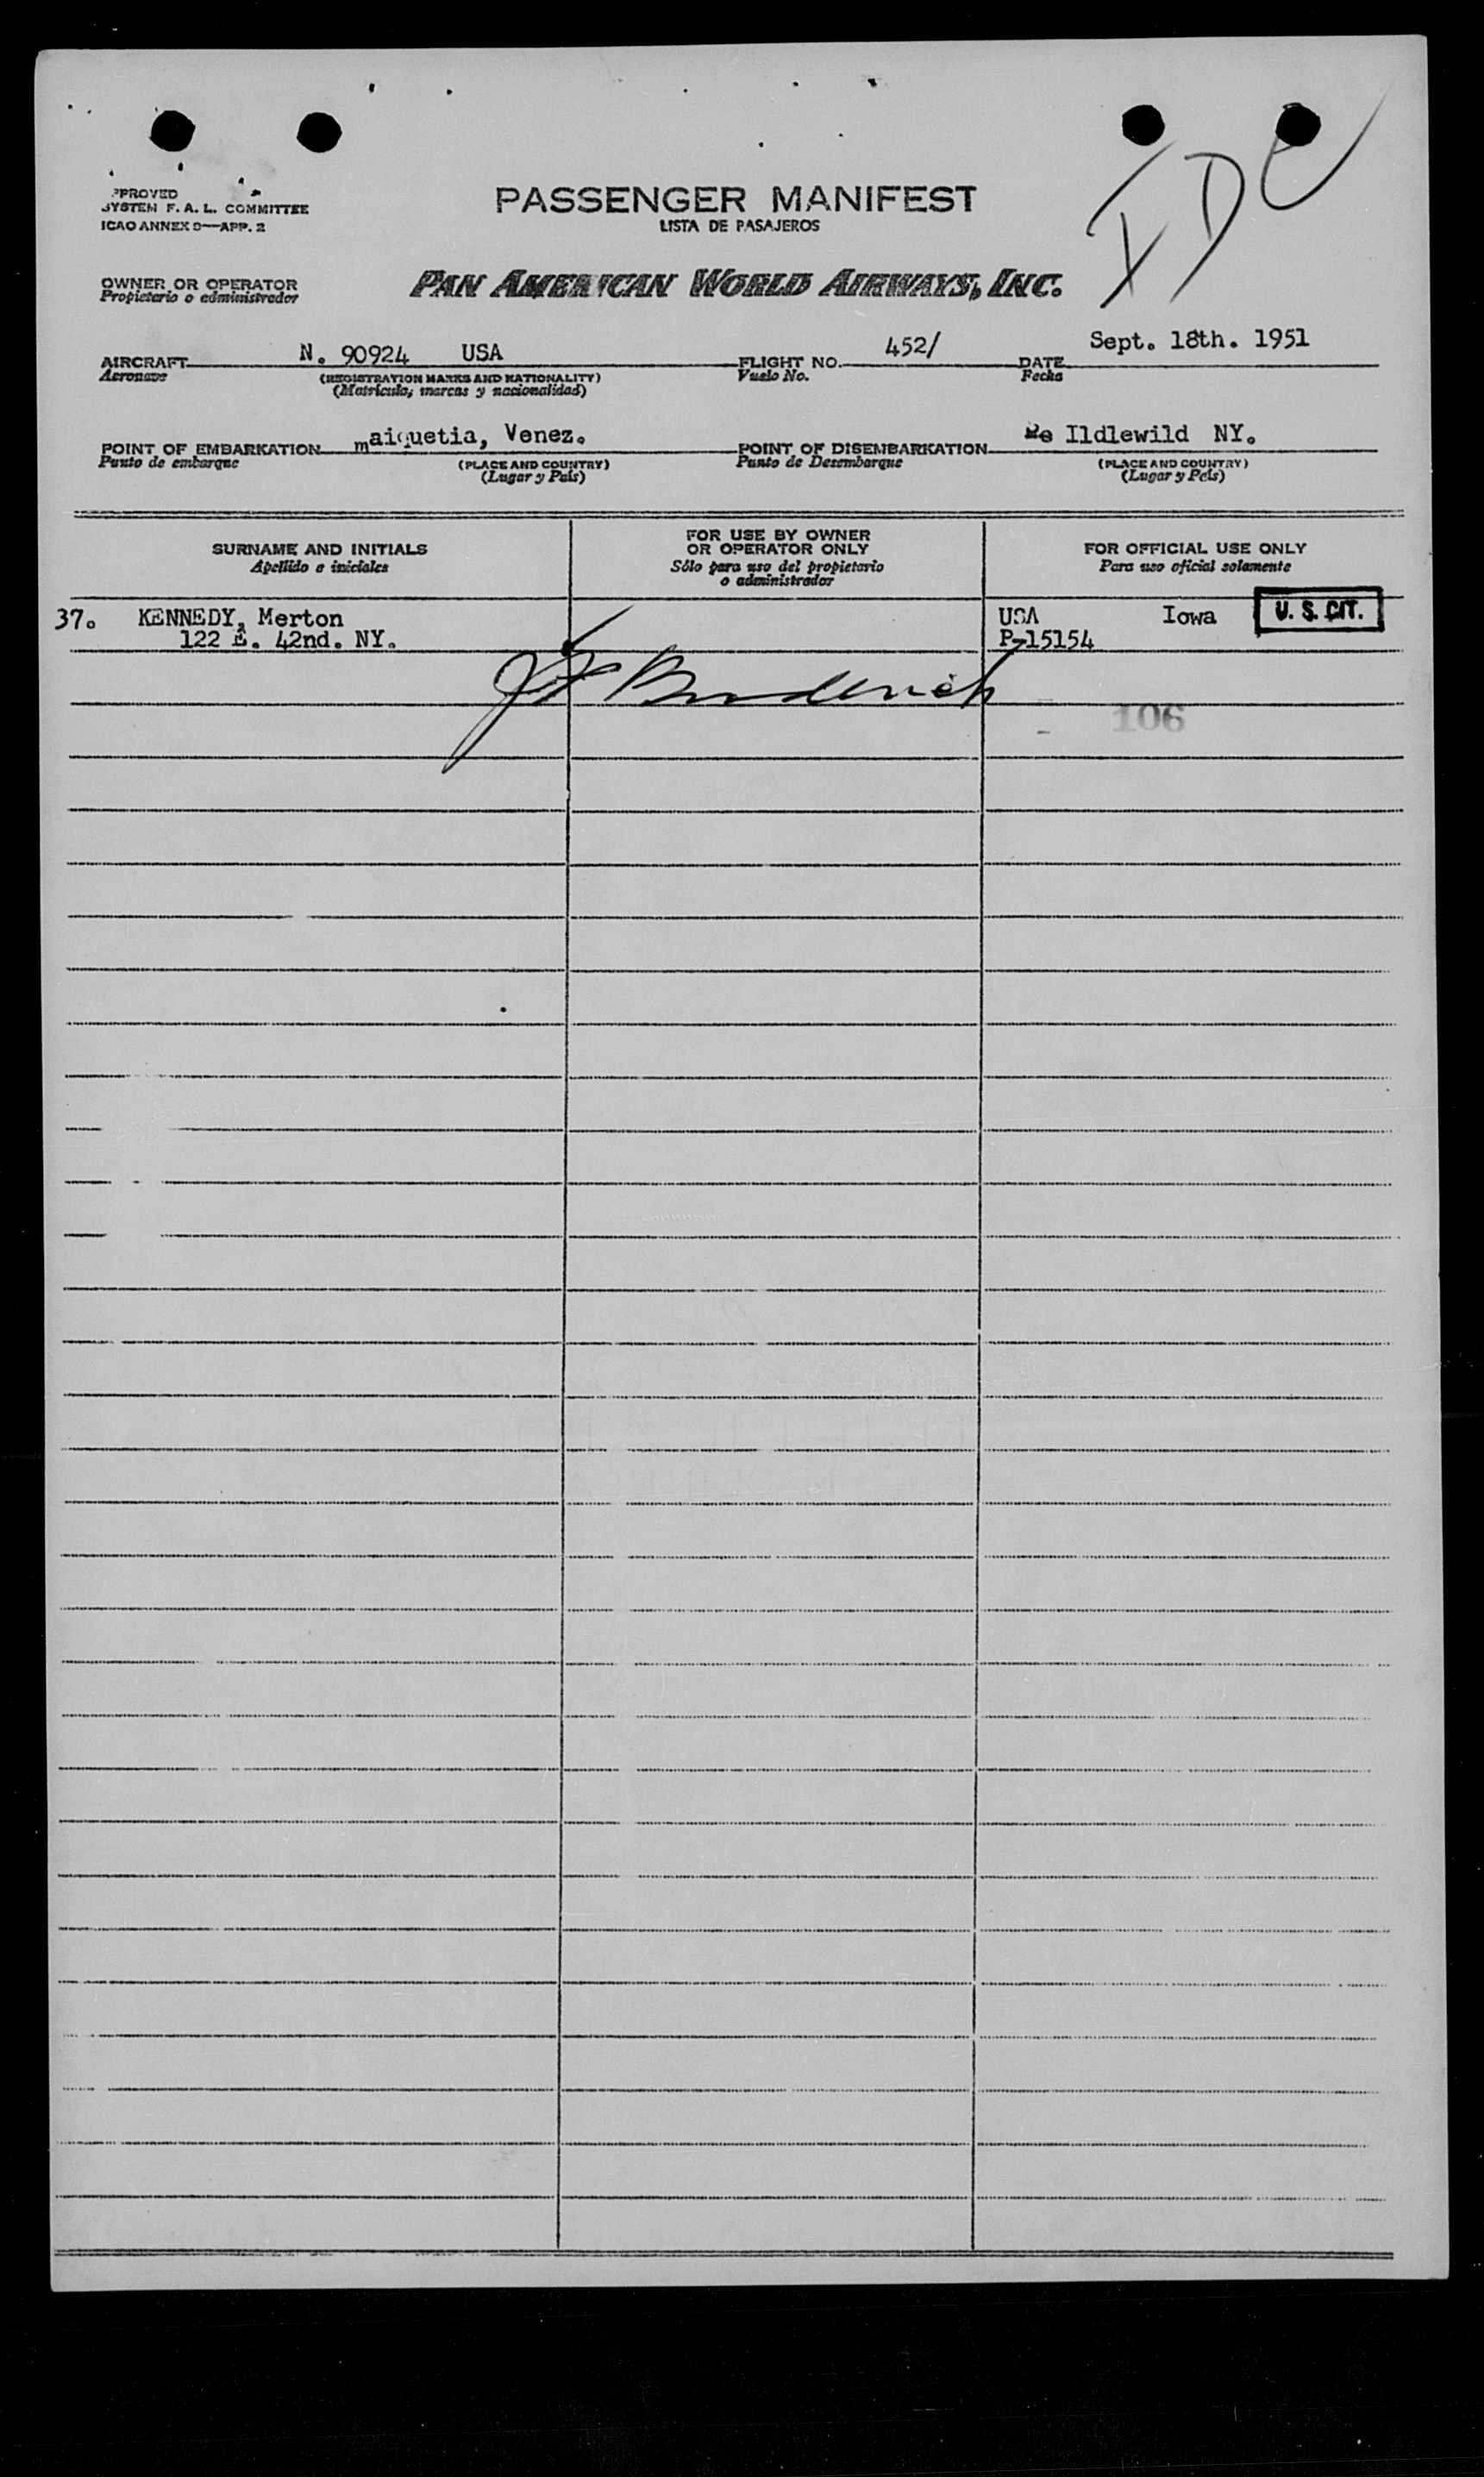 PPROVED
SYSTEM F. A. L. COMMITTEE
ICAO ANNEX 9—APP. 2
PASSENGER MANIFEST
LISTA DE PASAJEROS
IDC
OWNER OR OPERATOR
Propietario o administrador
PAN AMERICAN WORLD AIRWAYS, INC.
AIRCRAFT N. 90924 USA FLIGHT NO. 452/ DATE Sept. 18th. 1951
Aeronave (REGISTRATION MARKS AND NATIONALITY) Vuelo No. Fecha
(Matrícula, marcas y nacionalidad)
POINT OF EMBARKATION maiquetia, Venez. POINT OF DISEMBARKATION Ildlewild NY.
Punto de embarque (PLACE AND COUNTRY) Punto de Desembarque (PLACE AND COUNTRY)
(Lugar y País) (Lugar y País)
SURNAME AND INITIALS
Apellido e iniciales
FOR USE BY OWNER
OR OPERATOR ONLY
Sólo para uso del propietario
o administrador
FOR OFFICIAL USE ONLY
Para uso oficial solamente
37. KENNEDY, Merton USA Iowa U. S. CIT.
122 E. 42nd. NY. P-15154
106